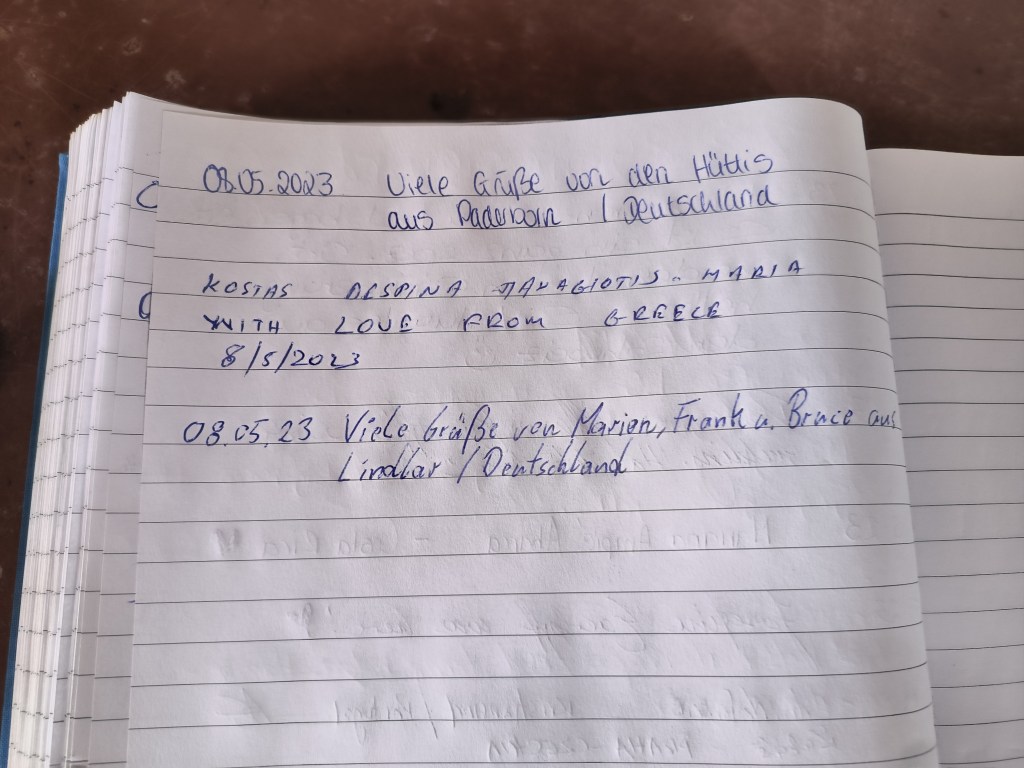 08.05.2023 Viele Grüße von den Hüttis
aus Paderborn / Deutschland
KOSTAS DESPINA PANAGIOTIS - MARIA
WITH LOVE FROM GREECE
8/5/2023
08.05.23 Viele Grüße von Marien, Frank u. Bruce aus
Lindlar / Deutschland